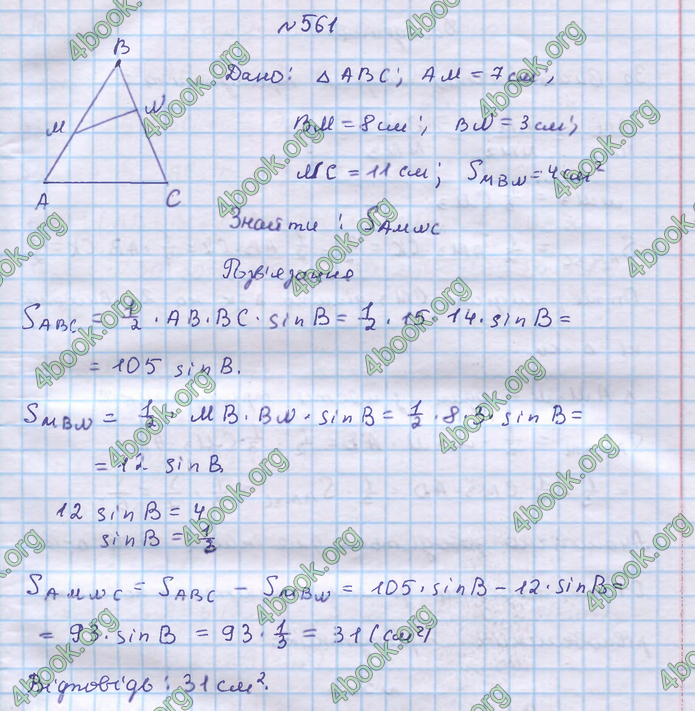 №561
B
M
N
A
C
Дано: △ABC; AM = 7 см;
BM = 8 см; BN = 3 см;
NC = 11 см; S_MBN = 4 см²
Знайти: S_AMNC
Розв'язання
S_ABC = 1/2 · AB · BC · sin B = 1/2 · 15 · 14 · sin B =
= 105 sin B.
S_MBN = 1/2 · MB · BN · sin B = 1/2 · 8 · 3 · sin B =
= 12 sin B
12 sin B = 4
sin B = 1/3
S_AMNC = S_ABC - S_MBN = 105 · sin B - 12 · sin B =
= 93 · sin B = 93 · 1/3 = 31 (см²)
Відповідь: 31 см².
4book.org